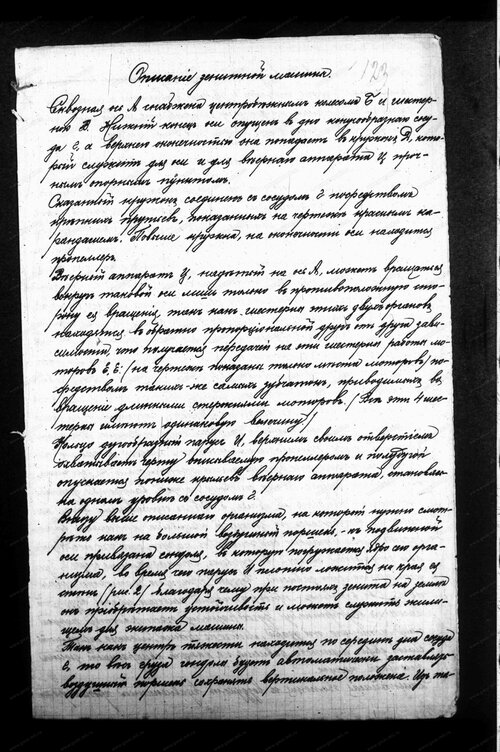 Описаніе зенитной машины.
123
Сквозная ось А снабжена центробѣжнымъ колесомъ Б и шестер-
ней В. Нижній конецъ оси опущенъ въ дно конусообразнаго сосу-
да Е, а верхней оконечностью она попадаетъ въ кружокъ D, кото-
рый служитъ для оси и для верхняго аппарата Ц проч-
нымъ опорнымъ пунктомъ.
Сказанный кружокъ соединенъ съ сосудомъ Е посредствомъ
прутьевъ, показанныхъ на чертежѣ краснымъ ка-
рандашемъ. Повыше кружка, на оконечности оси находится
пропеллеръ.
аппаратъ Ц, надѣтый на ось А, можетъ вращаться
вокругъ таковой оси лишь только въ противоположную сто-
рону ея вращенія, такъ какъ шестерни этихъ двухъ органовъ
находятся въ обратно пропорціональной другъ отъ друга зави-
симости, что получается передачей на эти шестерни работы мо-
торовъ Е, Е' (на чертежѣ показаны только мѣста моторовъ) по-
средствомъ такихъ-же самыхъ зубчатокъ, приводимыхъ въ
вращеніе длинными стержнями моторовъ. (Всѣ эти 4 шес-
терни имѣютъ одинаковую величину.)
Кольцо дугообразный парусъ И, верхнимъ своимъ отверстіемъ
охватываетъ черту описываемую пропеллеромъ и полудугой
опускается пониже крыльевъ аппарата, становясь
на одномъ уровнѣ съ сосудомъ Е.
Внизу выше описаннаго организма, на который нужно смот-
рѣть какъ на большой воздушный поршень, - къ подвижной
оси привязана гондола, въ которую погружается ядро его орга-
низма, во время чего парусъ И плотно ложится на края ея
стѣнъ (рис. 2) благодаря чему при постояхъ зенита на землѣ
онъ пріобрѣтаетъ устойчивость и можетъ служить жили-
щемъ для экипажа машины.
Такъ какъ центръ тяжести находится по серединѣ дна сосуда
Е, то гондола будетъ автоматически заставлять
воздушный поршень сохранять вертикальное положеніе. Изъ та-